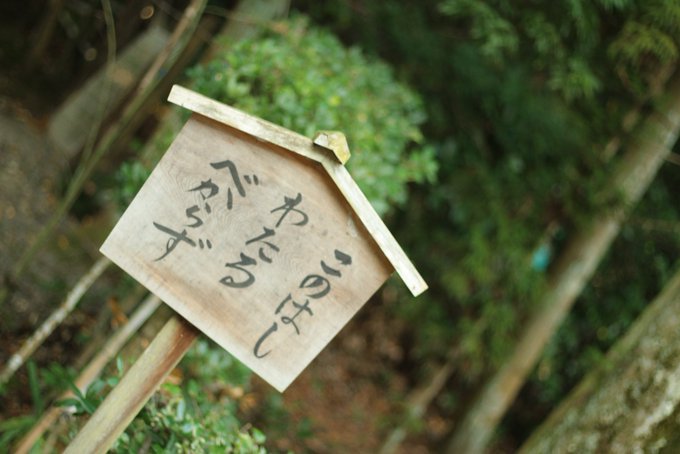 このはし
わたる
べからず